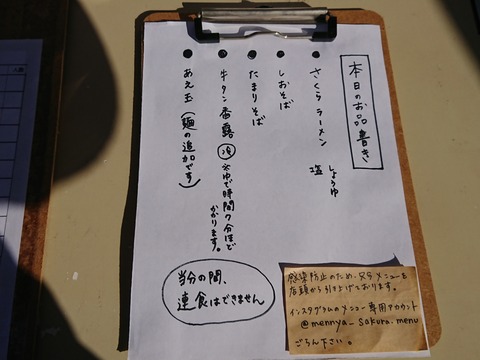 本日のお品書き
● さくらラーメン 塩 しょうゆ
● しおそば
● たまりそば
● 牛タン香露 冷 ※ゆで時間7分ほど
かかります。
● あえ玉(麺の追加です)
当分の間、
連食はできません
感染防止のため、メニューを
店頭から引き上げております。
インスタグラムのメニュー専用アカウント
@mennya_sakura.menu
ごらん下さい。